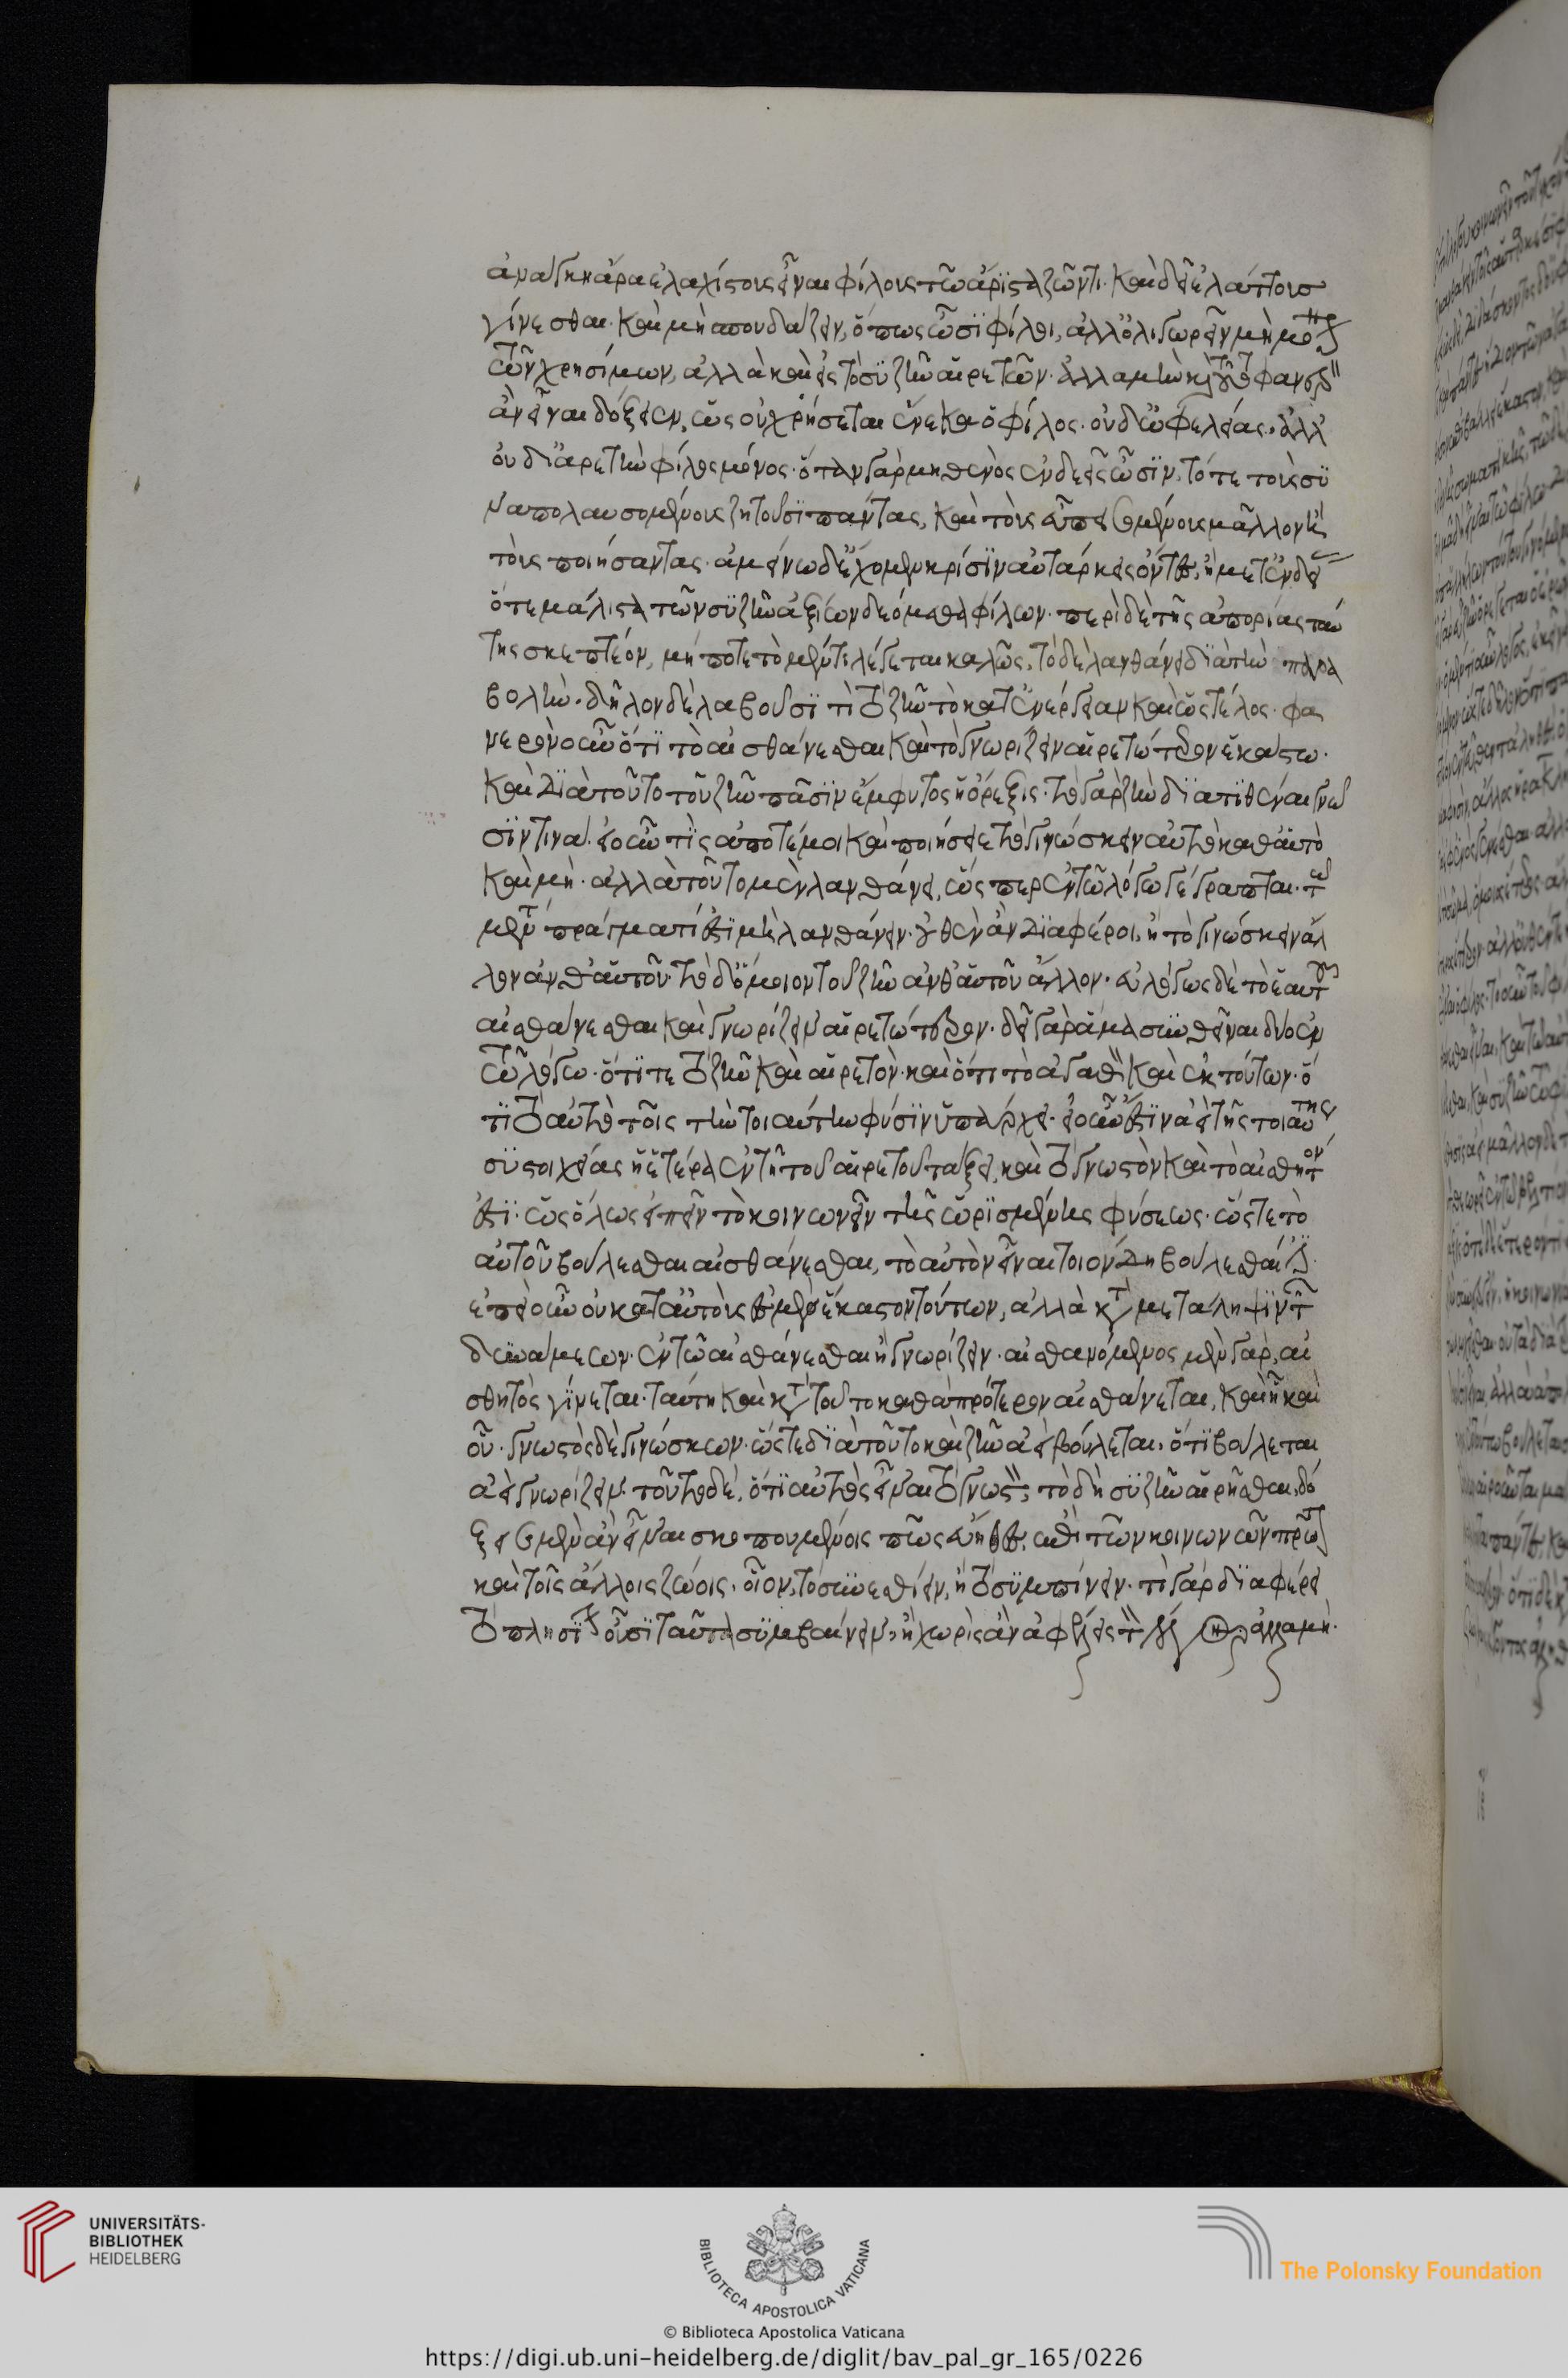 ἀναγκη ἄρα ἐλαχίστοις εἶναι φίλοις τῶ ἄριστα ζῶντι. καὶ δεῖ ἐλάττοισ
γίνεσθαι. καὶ μὴ σπουδάζειν, ὅπως ὦσϊ φίλοι, ἀλλ' ὀλιγωρεῖν μὴ μό
τῶν χρησίμων, ἀλλὰ καὶ εἰς τὸ συζῆν αἱρετῶν. ἀλλα μὴν καὶ φανερὸν
ἂν εἶναι δόξειεν, ὡς οὐ χρήσεται ἕνεκα ὁ φίλος. οὐδ' ὠφελείας. ἀλλ'
οὐ δι' ἀρετὴν φίλος μόνος. ὅταν γὰρ μηθενὸς ἐνδεεῖς ὦσϊν, τότε τοὶς συ
ναπολαυσομένοις ζητοῦσϊ παντας, καὶ τοὶς εὖ πεισομένοις μᾶλλον ἢ
τοὶς ποιήσαντας. ἀμείνω δ' ἔχομεν κρίσϊν αὐτάρκεις ὄντες, ἢ μετ' ἐνδεί
ὅτε μάλιστα τῶν συζῆν ἀξίων δεόμεθα φίλων. περὶ δὲ τῆς ἀπορίας ταύ
της σκεπτέον, μή ποτε τὸ μέν τι λέγεται καλῶς, τὸ δὲ λανθάνει διὰ τὴν παρα
βολὴν. δῆλον δὲ λαβοῦσϊ τὶ τὸ ζῆν τὸ κατ' ἐνέργειαν καὶ ὡς τέλος. φα
νερὸν οὖν ὅτϊ τὸ αἰσθάνεσθαι καὶ τὸ γνωρίζειν αἱρετώτατον ἑκάστω.
καὶ διὰ τοῦτο τοῦ ζῆν πᾶσϊν ἔμφυτος ἡ ὄρεξις. τὸ γὰρ ζῆν διατιθέναι γνω
σϊν τινα. εἰ οὖν τὶς ἀποτέμοι καὶ ποιήσειε τὸ γινώσκειν αὐτὸ καθ' αὑτὸ
καὶ μὴ. ἀλλὰ τοῦτο μὲν λανθάνει, ὥσπερ ἐν τῶ λόγω γέγραπται. τω
μέντοι πράγματι ἔστϊ μὴ λανθάνειν. οὐθὲν ἂν διαφέροι, ἢ τὸ γινώσκειν ἄλ
λον ἀνθ' αὑτοῦ. τὸ δ' ὅμοιον τοῦ ζῆν ἀνθ' αὑτοῦ ἄλλον. εὐλόγως δὲ τὸ ἑαυτοῦ
αἰσθάνεσθαι καὶ γνωρίζειν αἱρετώτερον. δεῖ γὰρ ἅμα συνθεῖναι δύο ἐν
τῶ λόγω. ὅτϊ τε τὸ ζῆν καὶ αἱρετὸν. καὶ ὅτι τὸ ἀγαθὸν καὶ ἐκ τούτων. ὅ
τϊ τὸ αὐτὸ τοῖς τὴν τοιαύτην φύσϊν ὑπάρχει. εἰ οὖν ἐστϊν ἀεὶ τῆς τοιαύτης
συστοιχείας ἡ ἑτέρα ἐν τῆ τοῦ αἱρετοῦ τάξει, καὶ τὸ γνωστὸν καὶ τὸ αἰσθητὸν
ἐστϊ. ὡς ὅλως εἰπεῖν τὸ κοινωνεῖν τῆς ὡρϊσμένης φύσεως. ὥστε τὸ
αὑτοῦ βούλεσθαι αἰσθάνεσθαι, τὸ αὑτὸν εἶναι τοιονδὴ βούλεσθαί ἐστϊ.
ἐπεὶ οὖν οὐ κατ' αὐτοὶς ἐσμὲν ἕκαστον τούτων, ἀλλὰ κατὰ μετάληψϊν τῶν
δυνάμεων. ἐν τῶ αἰσθάνεσθαι ἢ γνωρίζειν. αἰσθανόμενος μὲν γὰρ, αἰ
σθητὸς γίνεται. ταύτη καὶ κατὰ τοῦτο καθὰ πρότερον αἰσθάνεται, καὶ ἧ καὶ
οὗ. γνωστὸς δὲ γινώσκων. ὥστε διὰ τοῦτο καὶ ζῆν ἀεὶ βούλεται, ὅτϊ βούλεται
ἀεὶ γνωρίζειν. τοῦτο δὲ, ὅτϊ αὐτὸς εἶναι τὸ γνωστὸν, τὸ δὴ συζῆν αἱρεῖσθαι, δό
ξειε μὲν ἂν εἶναι σκοπουμένοις πῶς εὔηθες. ἐπὶ τῶν κοινῶν πρῶτον
καὶ τοῖς ἄλλοις ζώοις. οἷον, τὸ συνεσθίειν, ἢ τὸ συμπίνειν. τί γὰρ διαφέρει
τὸ πλησίον οὖσϊ ταῦτα συμβαίνειν, ἢ χωρὶς ἂν ἀφέλης τὸν λόγον ἀλλαμὴ.
UNIVERSITÄTS-
BIBLIOTHEK
HEIDELBERG
BIBLIOTECA APOSTOLICA VATICANA
The Polonsky Foundation
© Biblioteca Apostolica Vaticana
https://digi.ub.uni-heidelberg.de/diglit/bav_pal_gr_165/0226